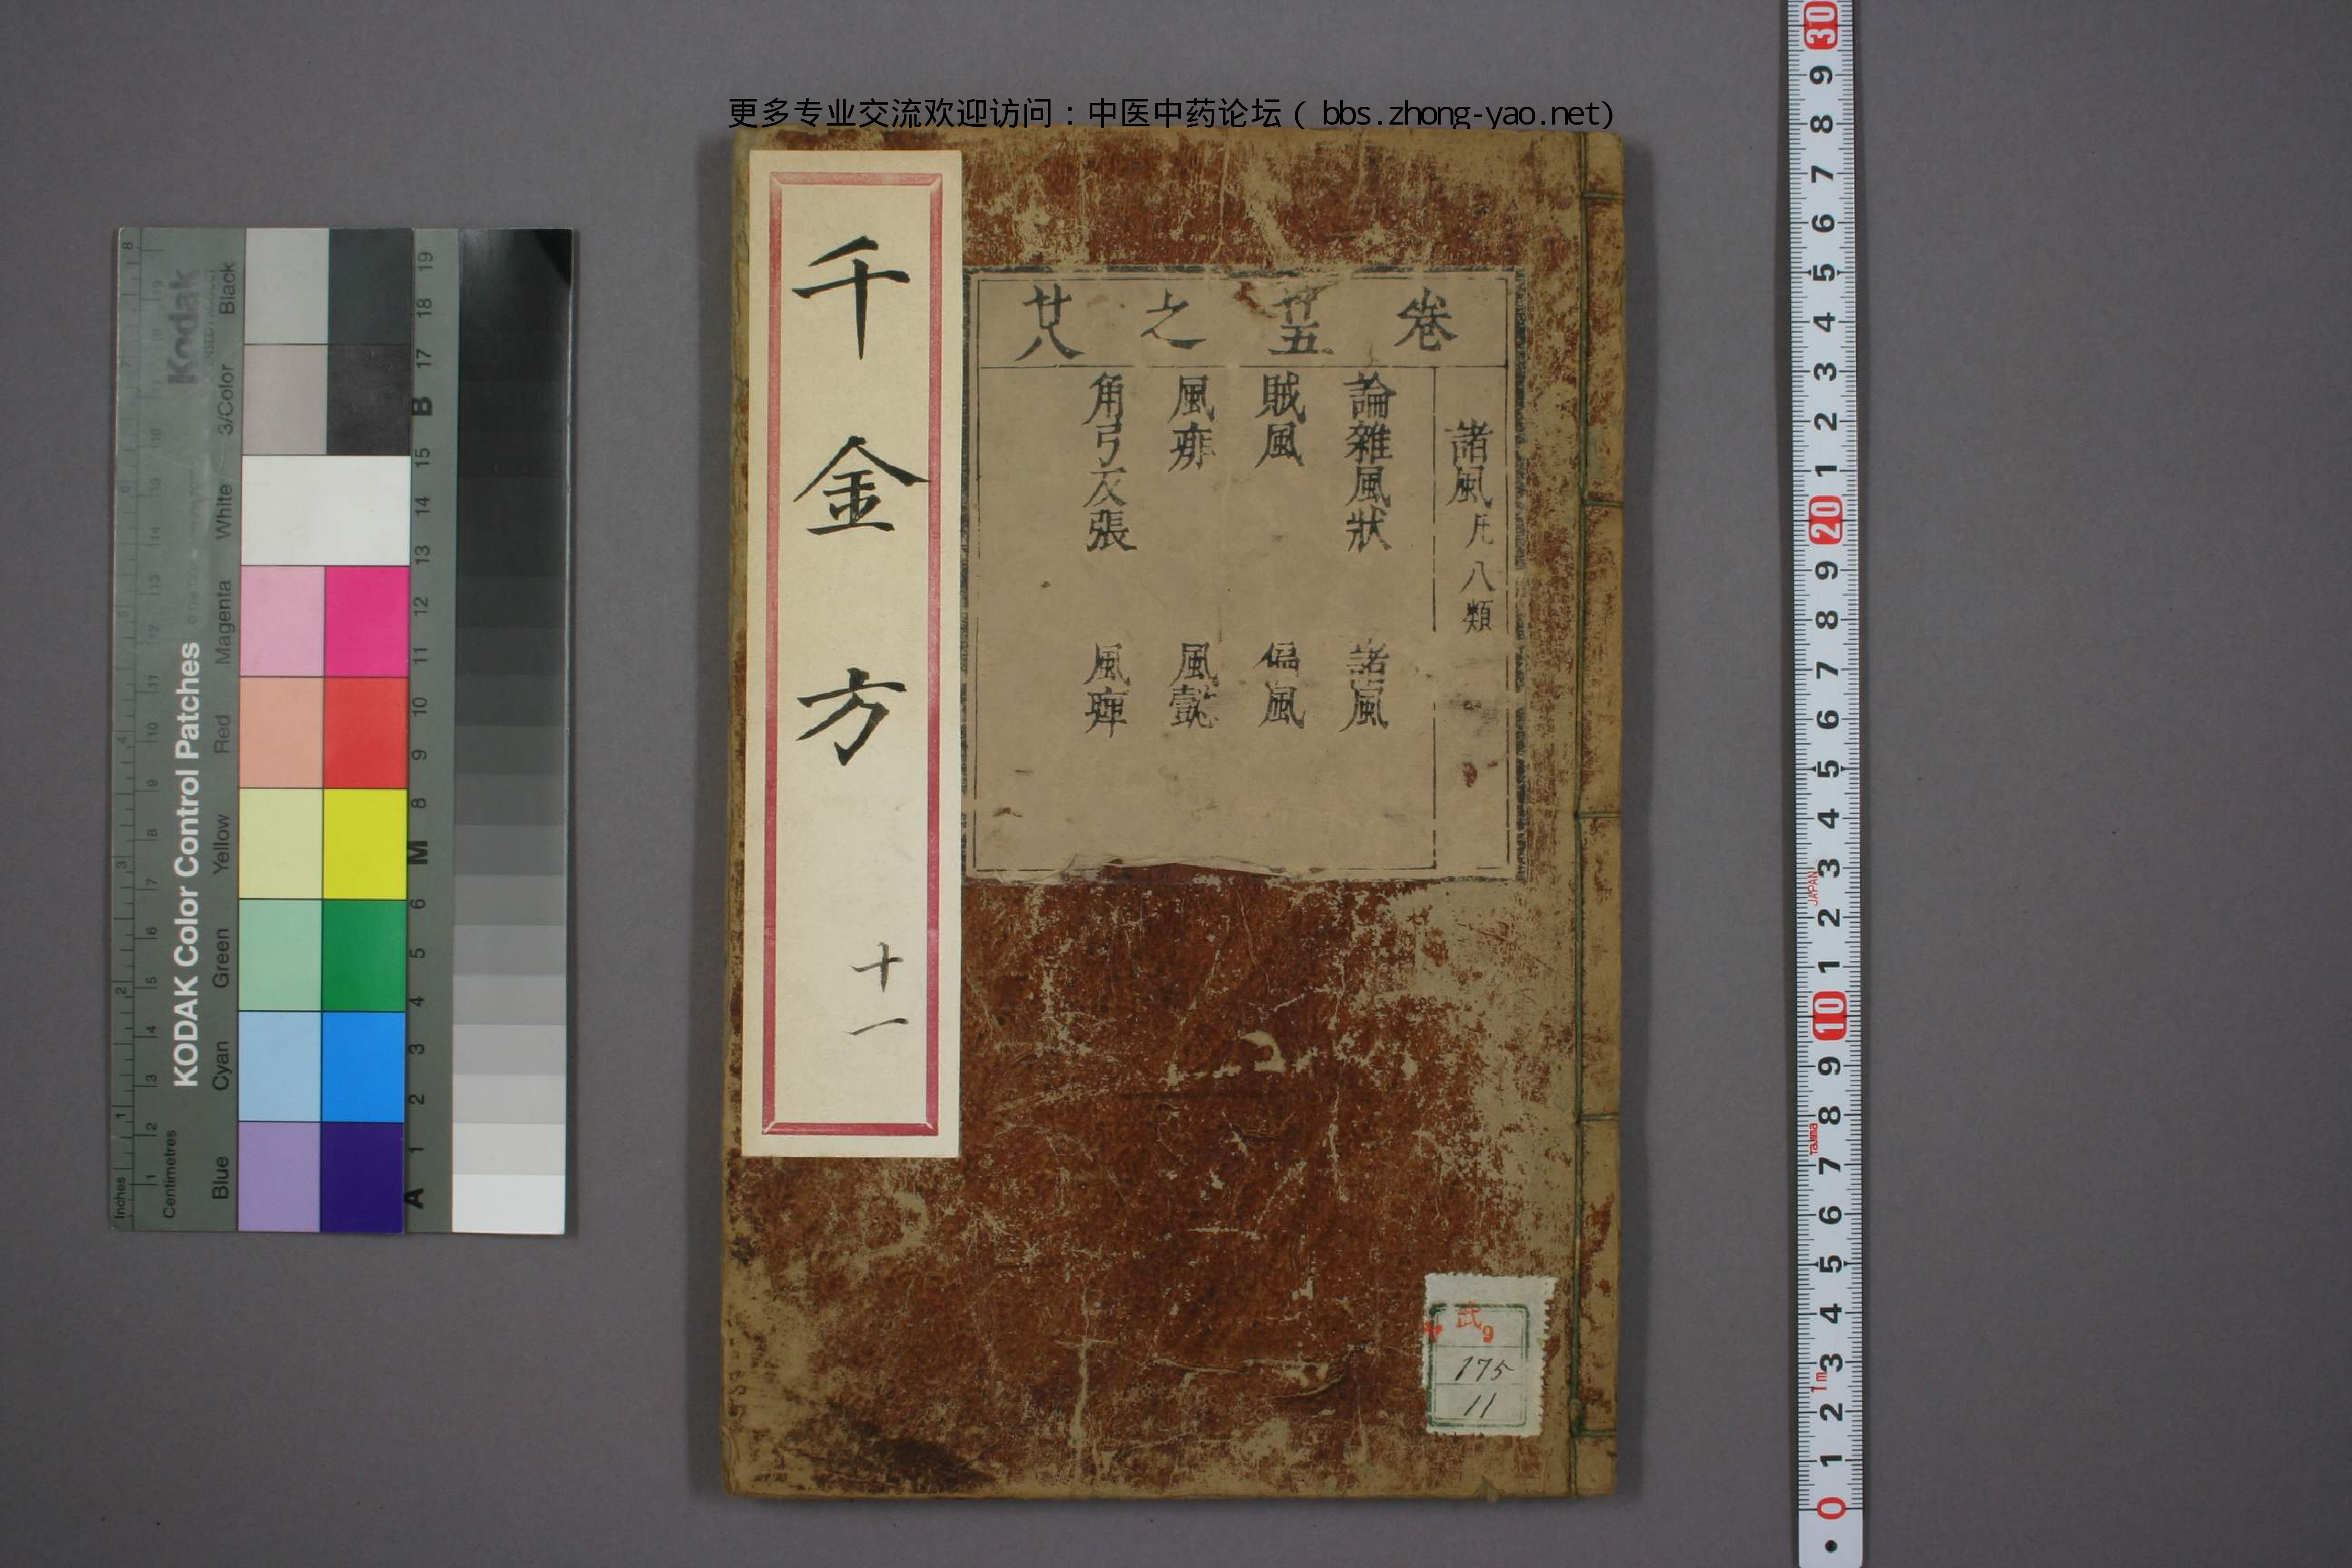 更多专业交流欢迎访问：中医中药论坛（bbs.zhong-yao.net)
卷 廿五 之 廿八
諸風 凡八類
論雜風狀 諸風
賊風 偏風
風痱 風懿
角弓反張 風痺
千金方 十一
武9
175
11
KODAK Color Control Patches
Kodak
Inches
Centimetres
Blue Cyan Green Yellow Red Magenta White 3/Color Black
8
7
6
5
4
3
2
1
A 1 2 3 4 5 6 M 8 9 10 11 12 13 14 15 B 17 18 19
30
9
8
7
6
5
4
3
2
1
20
9
8
7
6
5
4
3
JAPAN
2
1
10
9
8
Tajima
7
6
5
4
3
1m
2
1
0